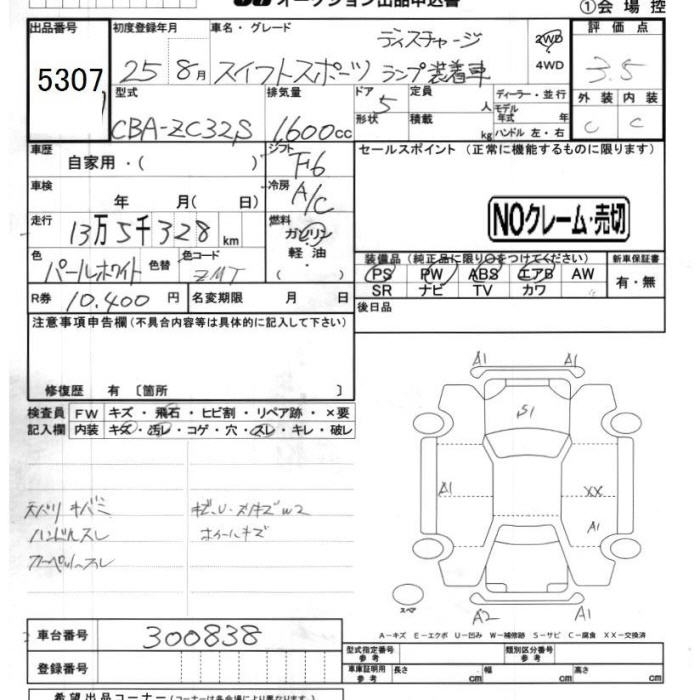 オークション出品申込書
①会場控
出品番号 初度登録年月 車名・グレード 評価点
5307 25 8月 スイフトスポーツ ディスチャージ
ランプ装着車 2WD 4WD 3.5
型式 排気量 ドア 定員 ディーラー・並行 外装 内装
CBA-ZC32S 1600cc 5 人 モデル年式 年 C C
形状 積載 kg ハンドル 左・右
車歴 シフト セールスポイント (正常に機能するものに限ります)
自家用・( ) F6
車検 冷房
年 月( 日) A/C NOクレーム・売切
走行 燃料
13万5千328km ガソリン
色 色替 色コード 軽油 装備品 (純正品に限り○をつけてください) 新車保証書
パールホワイト ZMT ( ) PS PW ABS エアB AW 有・無
SR ナビ TV カワ
R券 10.400円 名変期限 月 日 後日品
注意事項申告欄(不具合内容等は具体的に記入して下さい)
修復歴 有 〔箇所 〕
検査員 FW キズ・飛石・ヒビ割・リペア跡・×要
記入欄 内装 キズ・汚レ・コゲ・穴・スレ・キレ・破レ
A1 A1
S1
A1 XX
A1
天バリ キバミ キズ、U・メイキズW2
ハンドルスレ ホイールキズ
カーペットスレ
スペア
A2 A1
A-キズ E-エクボ U-凹み W-補修跡 S-サビ C-腐食 XX-交換済
車台番号 300838
型式指定番号 参考 類別区分番号 参考
登録番号 車庫証明用 参考 長さ cm 幅 cm 高さ cm
希望出品コーナー(コーナーは各会場により異なります)